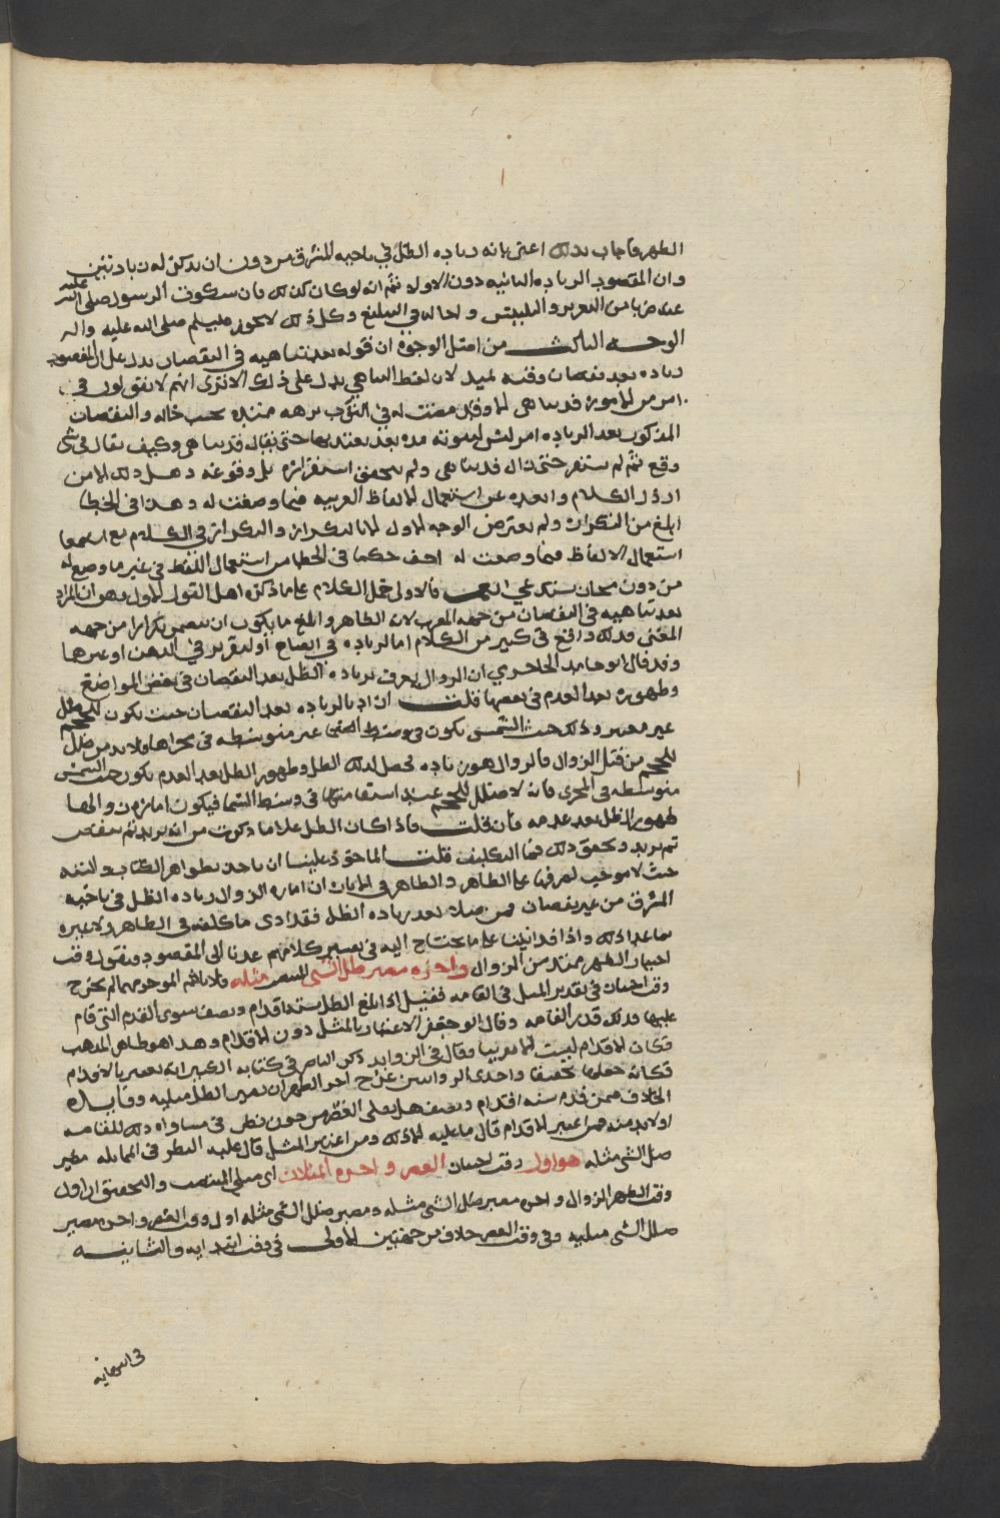 الظهر فأجاب بذلك اعني بانه زيادة الظل في ناحية المشرق من دون ان يذكر له زيادتين
وان المقصود الزيادة الثانية دون الاولى ثم انه لو كان كذلك كان سكوت الرسول صلى الله عليه
من التغرير والتلبيس في التبليغ وكل ذلك لا يجوز صلى الله عليه واله
الوجه الثالث من اصل الوجوه ان قوله بعد تناهيه في النقصان يدل على ان المقصود
زيادة بعد نقصان وفيه لان لفظ التناهي يدل على ذلك الا ترى انهم لا يقولون في
امر من الامور قد تناهى الا وقد مضت له في برهة ممتدة بحسب حاله والنقصان
المذكور بعد الزيادة امر ليس لثبوته مدة بعد يعتد بها حتى يقال قد تناهى وكيف يقال في شي
وقع ثم لم يستقر حتى زال قد تناهى ولم يتحقق استقراره بل وقوعه وهل ذلك الا من
ارذل الكلام وابعده عن استعمال الالفاظ العربية فيما وضعت له وهذا في الخطا
ابلغ من التكرار ولم يعترض الوجه الاول الا بالتكرار والتكرار في الكلام مع
استعمال الالفاظ فيما وضعت له اخف حكما في الخطا من استعمال اللفظ في غير ما وضع له
من دون فالاولى حمل الكلام على ما ذكره اهل القول الاول وهو ان المراد
بعد تناهيه في النقصان من جهة المغرب لانه الظاهر وابلغ ما يكون ان يتضمن تكرارا من جهة
المعنى وذلك واقع في كثير من الكلام اما لزيادة في ايضاح او لتقرير في الذهن او غيرها
وقد قال ابو حامد الجاجرمي ان الزوال يعرف بزيادة الظل بعد النقصان في بعض المواضع
وظهوره بعد العدم في بعضها قلت اراد بالزيادة بعد النقصان حيث يكون للجسم ظل
غير وذلك حيث الشمس تكون في وسط غير متوسطة في مجراها فلا بد من ظل
للجسم من قبل الزوال فالزوال هو زيادة تحصل لذلك الظل وظهور الظل بعد العدم يكون حيث الشمس
متوسطة في المجرى فانه لا ظل للجسم عند استقامتها في وسط السما فيكون امارة زوالها
ظهور الظل بعد عدمه فان قلت فاذا كان الظل على ما ذكرت من انه يزيد ثم ينقص
ثم يزيد وتحقق ذلك فما التكليف قلت الماخوذ علينا ان ناخذ بظواهر الكتاب والسنة
حيث لا موجب لصرفها عن الظاهر والظاهر في ان امارة الزوال زيادة الظل في ناحية
المشرق من غير نقصان فمن صلا بعد زيادة الظل فقد ادى ما كلفه في الظاهر ولا عبرة
بما عدا ذلك واذا قد اتينا على ما يحتاج اليه في تفسير كلامهم عدنا الى المقصود ونقول وقت
اختيار الظهر ممتد من الزوال واخره مصير ظل الشي مثله
وقد اختلف في تقدير المثل في القامة فقيل اذا بلغ الظل ستة اقدام ونصف سوى القدم التي قام
عليها وذلك قدر القامة وقال ابو جعفر الاعتبار بالمثل دون الاقدام وهذا هو ظاهر المذهب
فكان الاقدام ليست الا تقريبا وقال في الزوايد ذكر الناصر في كتابه الكبير انه يعتبر بالاقدام
فكانه جعلها تحقيقا واحدى الروايتين عن ح اخر الظهر ان يصير الظل مثليه وفايدة
الخلاف فمن قدم ستة اقدام ونصف هل يصلي العصر من دون نظر في مساواة ذلك للقامة
اولا بد منه فمن اعتبر الاقدام قال ما عليه الا ذلك ومن اعتبر المثل قال عليه النظر في المماثلة مصير
ظل الشي مثله هو اول وقت اختيار العصر واخره المثلان اي مثلي المنتصب والتحقيق ان اول
وقت الظهر الزوال واخره مصير ظل الشي مثله ومصير ظل الشي مثله اول وقت العصر واخره مصير
ظل الشي مثليه وفي وقت العصر خلاف من جهتين الاولى في وقت ابتدايه والثانية
في انتهايه